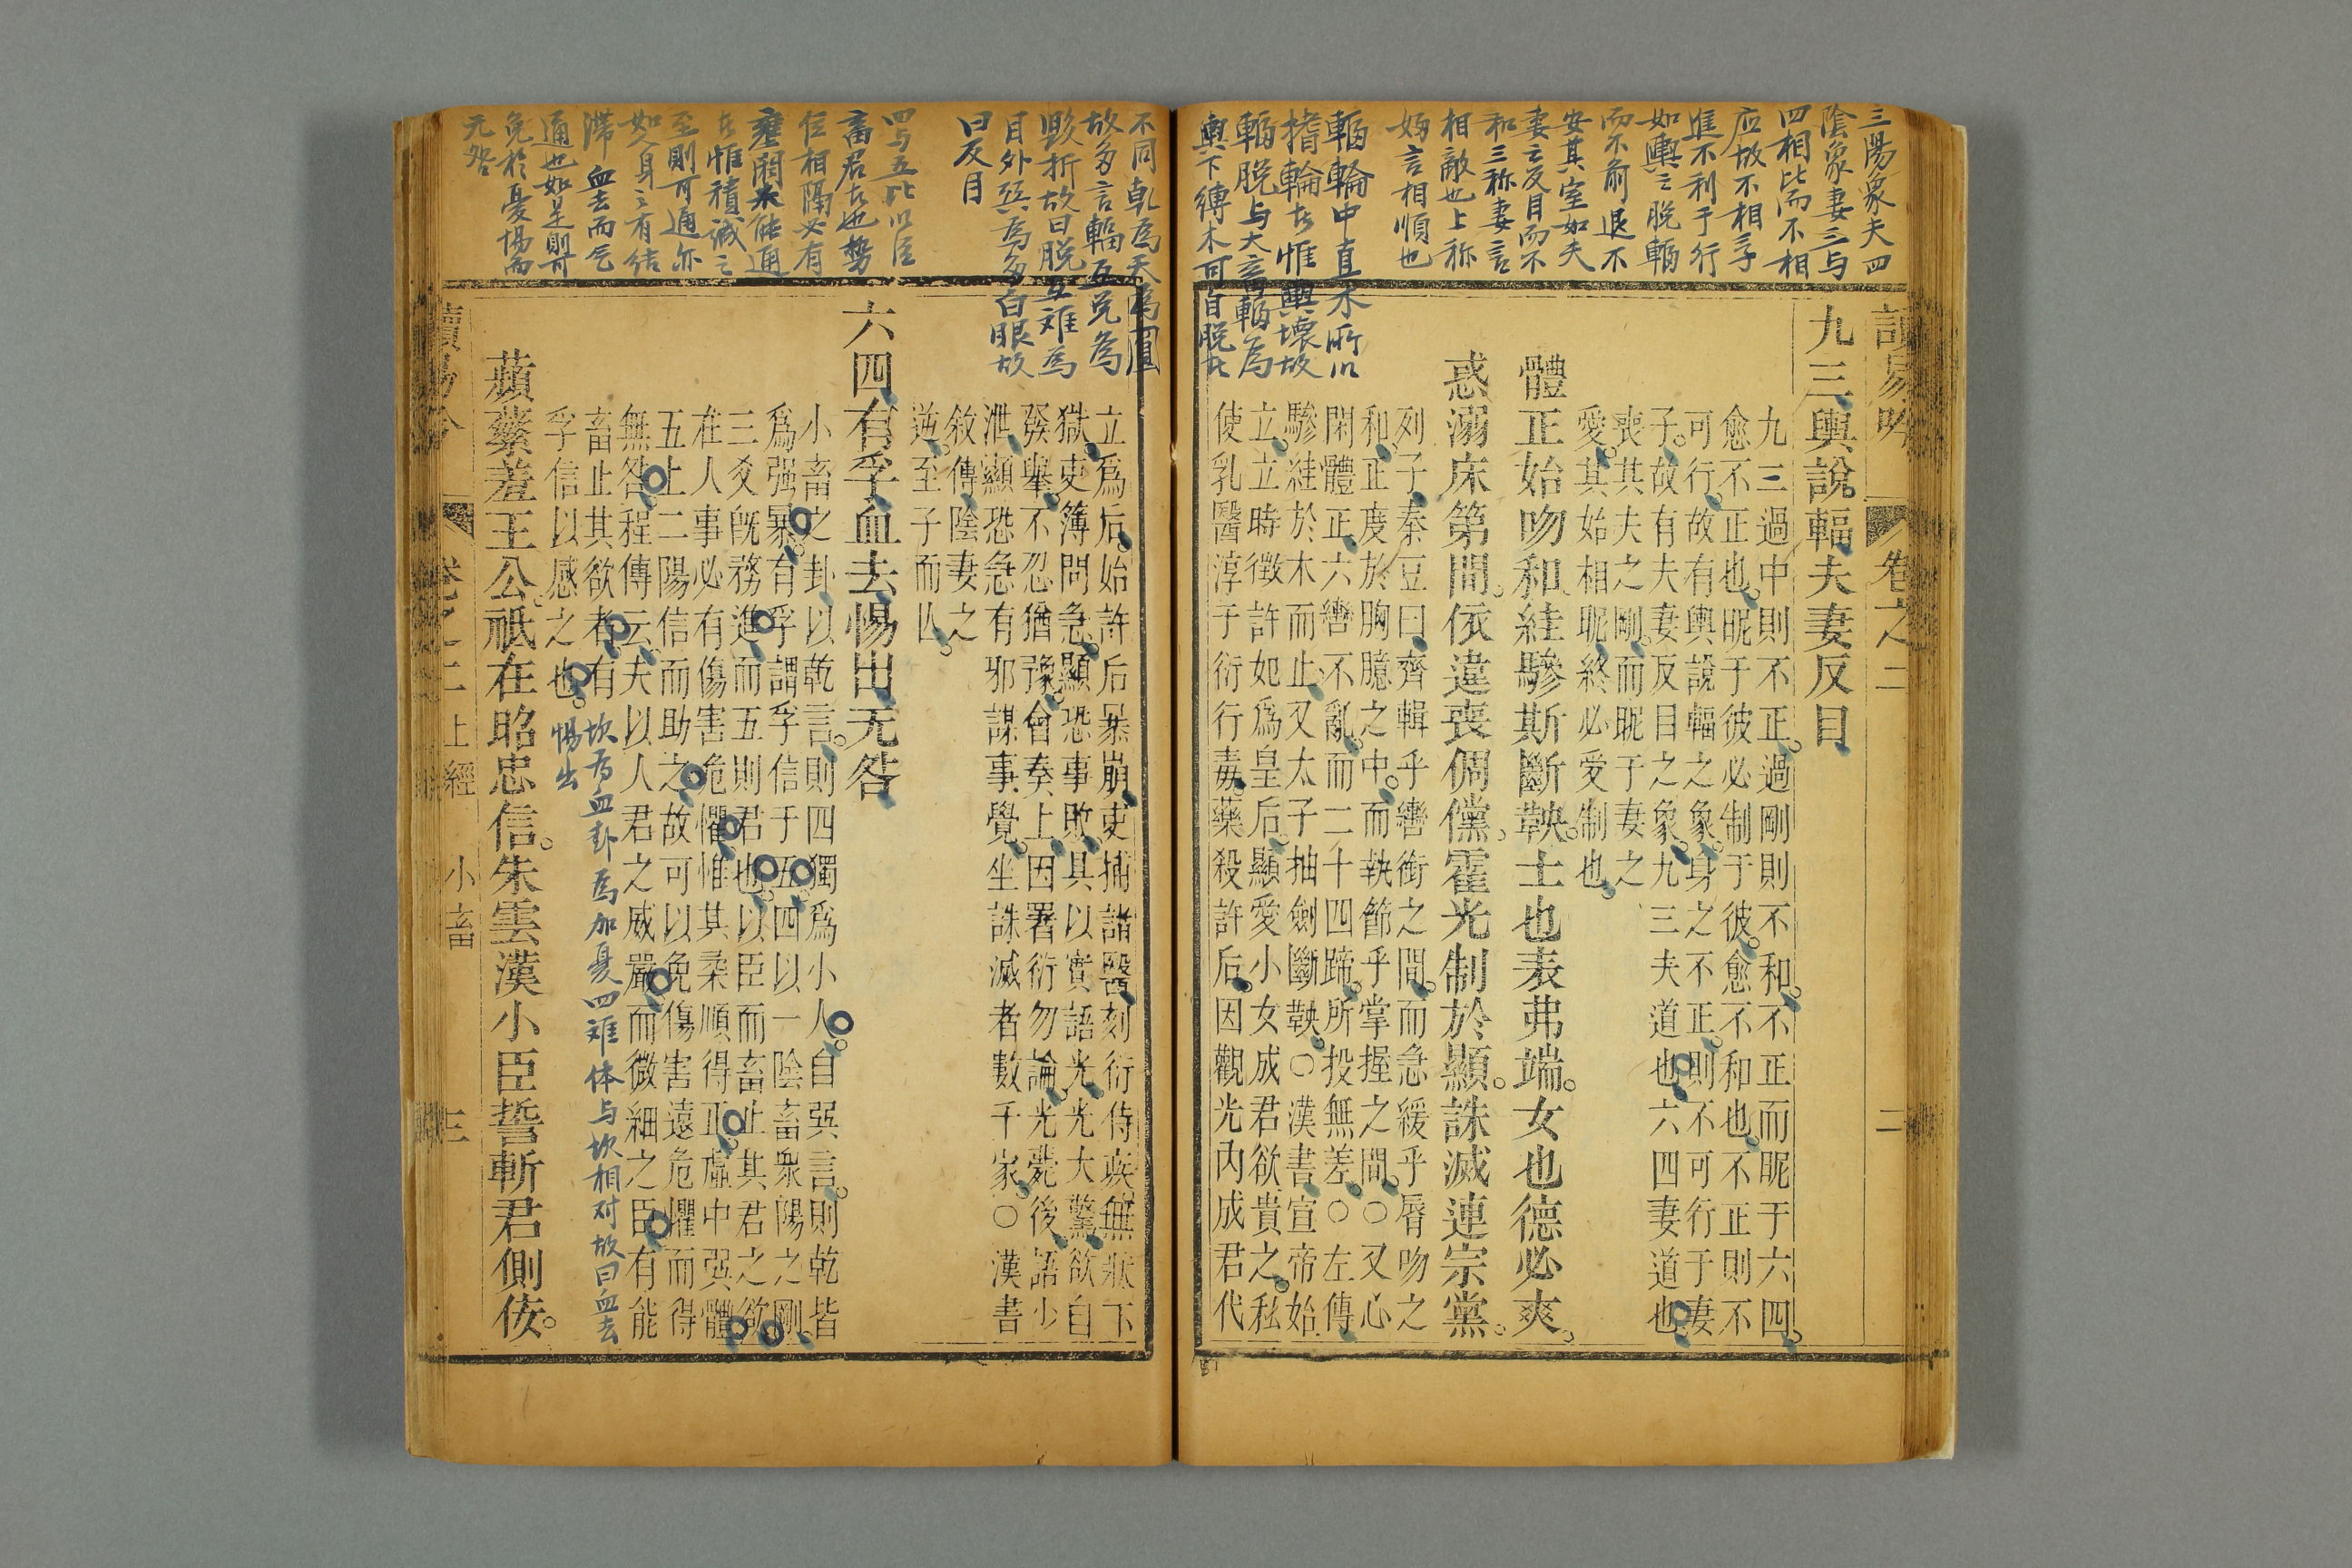 三陽象夫四
陰象妻三与
四相比而不相
应故不相孚
進不利于行
如輿之脱輻
而不前退不
安其室如夫
妻之反目而不
和三称妻言
相敵也上称
婦言相順也
輻輪中直木所以
輪者惟輿壞故
輻脱与大畜輹為
輿下縛木可自脱者
卷之二
二
九三輿說輻夫妻反目
九三過中則不正過剛則不和不正而昵于六四
愈不正也昵于彼必制于彼愈不和也不正則不
可行故有輿說輻之象身之不正則不可行于妻
子故有夫妻反目之象九三夫道也六四妻道也
喪其夫之剛而昵于妻之
愛其始相昵終必愛制也
體正始吻和絓驂斯斷鞅士也表弗端女也德必爽
惑溺床第間依違喪倜儻霍光制於顯誅滅連宗黨
列子秦豆曰齊輯乎轡銜之間而急緩乎脣吻之
和正度於胸臆之中而執節乎掌握之間〇又心
閑體正六轡不亂而二十四蹄所投無差〇左傳
驂絓於木而止又太子抽劍斷鞅〇漢書宣帝始
立立時徵許妃爲皇后顯愛小女成君欲貴之私
使乳醫淳于衍行毒藥殺許后因觀光內成君代
不同乾為天為圜
故多言輻互兌為
毀折故曰脱互难為
目外巽為多白眼故
曰反目
立爲后始許后暴崩吏捕諸醫刻衍侍疾無狀下
獄吏簿問急顯恐事敗具以實語光光大驚欲自
發舉不忍猶豫會奏上因署衍勿論光薨後語少
泄顯恐急有邪謀事覺坐誅滅者數千家〇漢書
敘傳陰妻之
逆至子而亾
四与五比以臣
畜君者也勢
位相隔必有
壅閼未能通
者惟積誠之
至則可通亦
如人身之有結
滞血去而气
通也如是則可
免於憂惕而
无咎
六四有孚血去惕出无咎
小畜之卦以乾言則四獨爲小人自巽言則乾皆
爲强暴有孚謂孚信于五四以一陰畜衆陽之剛
三爻旣務進而五則君也以臣而畜止其君之欲
在人事必有傷害危懼惟其柔順得正虛中巽體
五上二陽信而助之故可以免傷害遠危懼而得
無咎程傳云夫以人君之威嚴而微細之臣有能
畜止其欲者有
孚信以感之也
坎为血卦為加憂四难体与坎相对故曰血去
惕出
蘋蘩羞王公祇在昭忠信朱雲漢小臣誓斬君側佞
上經
小畜
三